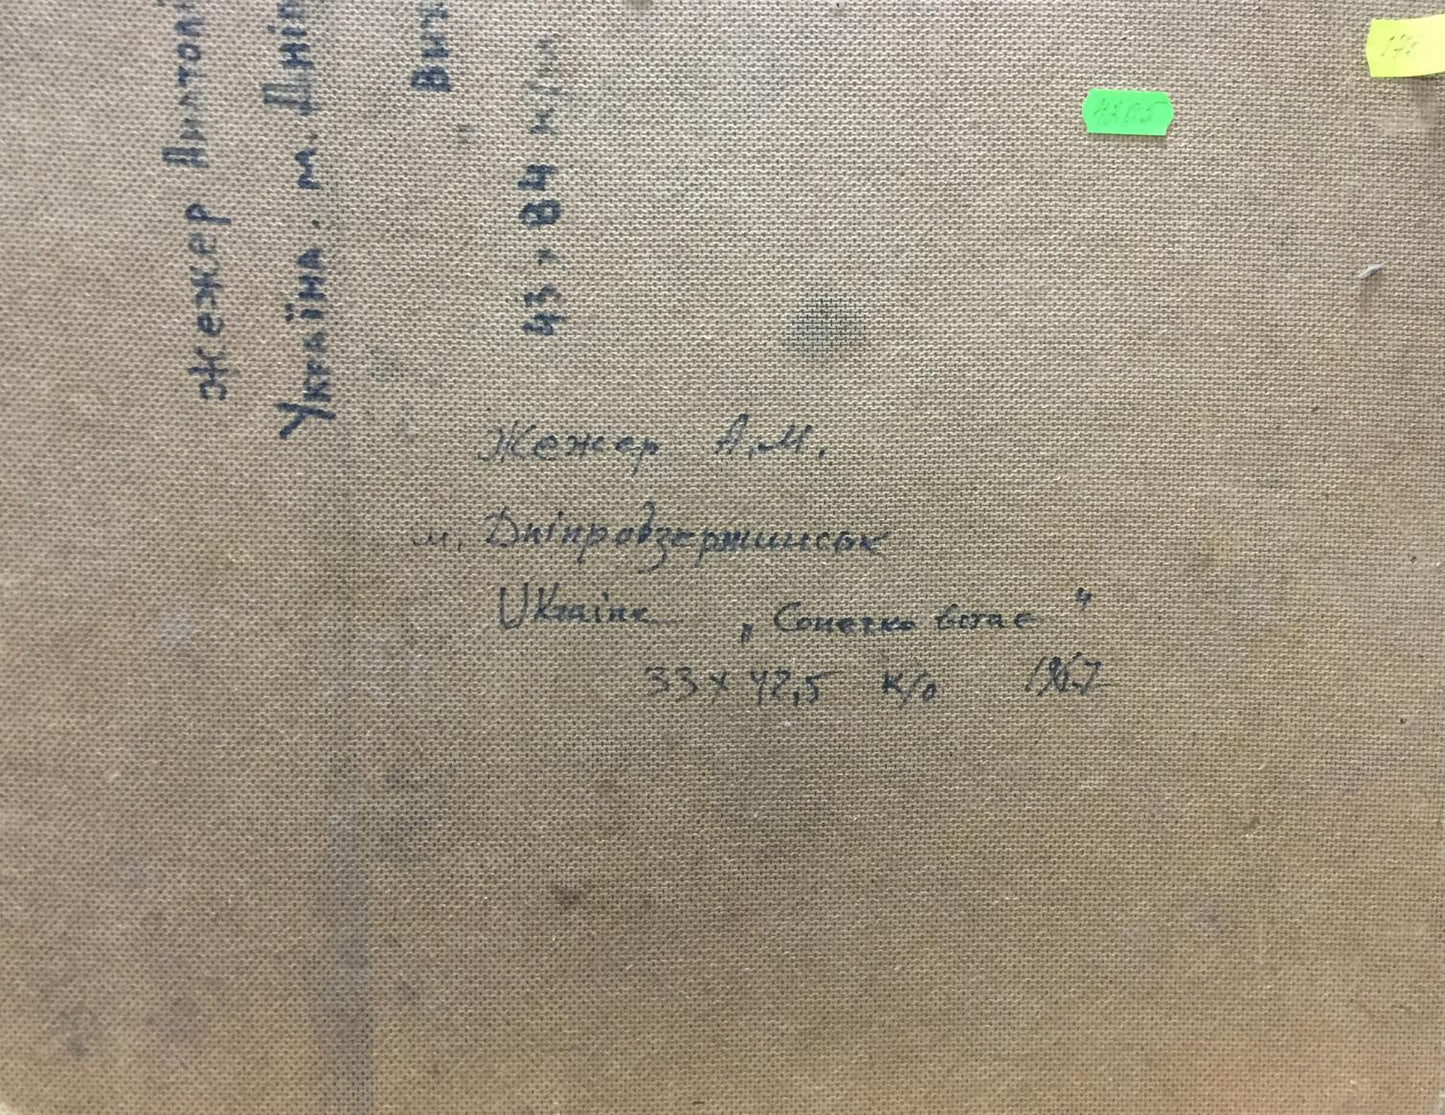 Жежер Анатолі
Україна. м. Дніп
Вич
43 × 84
Жежер А.М.
м. Дніпродзержинськ
Ukraine „Сонечко встає"
33 x 42,5 к/о 1967
4205